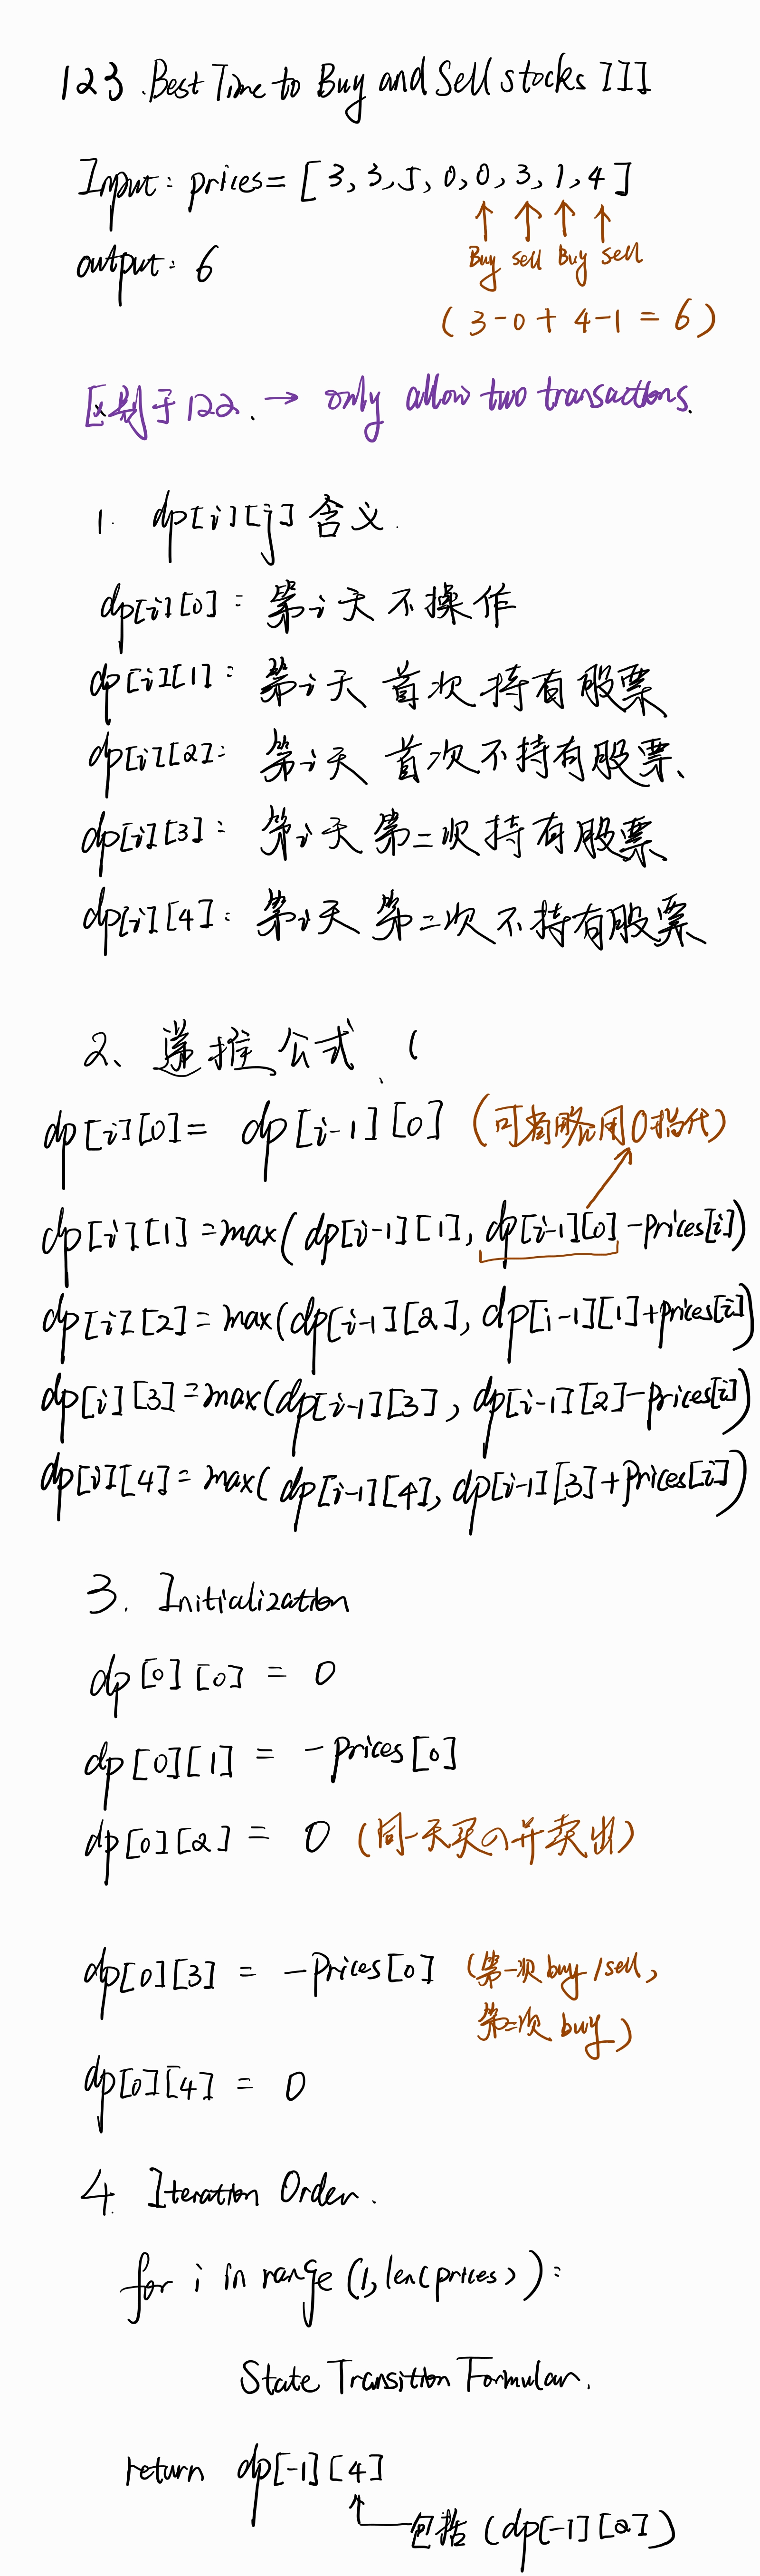 123. Best Time to Buy and Sell stocks III
Input: prices = [3, 3, 5, 0, 0, 3, 1, 4]
↑ ↑ ↑ ↑
output: 6
Buy sell Buy sell
(3-0 + 4-1 = 6)
区别于122. → only allow two transactions.
1. dp[i][j] 含义.
dp[i][0]: 第i天 不操作
dp[i][1]: 第i天 首次 持有股票
dp[i][2]: 第i天 首次不持有股票、
dp[i][3]: 第i天 第二次持有股票
dp[i][4]: 第i天 第二次不持有股票
2、递推公式、(
dp[i][0] = dp[i-1][0] (可省略用0指代)
dp[i][1] = max(dp[i-1][1], dp[i-1][0] - prices[i])
dp[i][2] = max(dp[i-1][2], dp[i-1][1] + prices[i])
dp[i][3] = max(dp[i-1][3], dp[i-1][2] - prices[i])
dp[i][4] = max(dp[i-1][4], dp[i-1][3] + prices[i])
3. Initialization
dp[0][0] = 0
dp[0][1] = -prices[0]
dp[0][2] = 0 (同一天买入并卖出)
dp[0][3] = -prices[0] (第一次 buy/sell,
第二次 buy)
dp[0][4] = 0
4. Iteration Order.
for i in range(1, len(prices)):
State Transition Formular.
return dp[-1][4]
↑ 包括 (dp[-1][2])